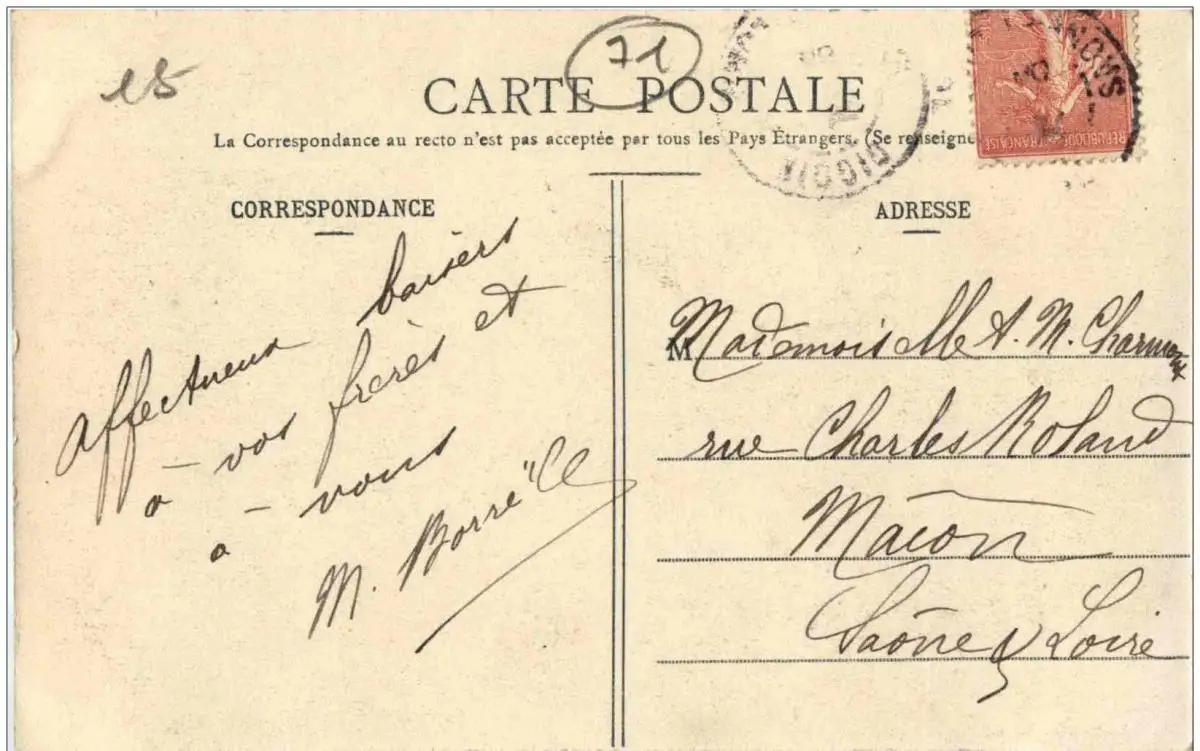 15
71
CARTE POSTALE
La Correspondance au recto n'est pas acceptée par tous les Pays Étrangers. (Se renseigne
CORRESPONDANCE
affectueux baisers
à - vos frères et
à - vous
M. Borre
ADRESSE
M
Mademoiselle A. M.
rue Charles Roland
Macôn
Saône & Loire
DIGOIN
SAONE
REPUBLIQUE FRANÇAISE